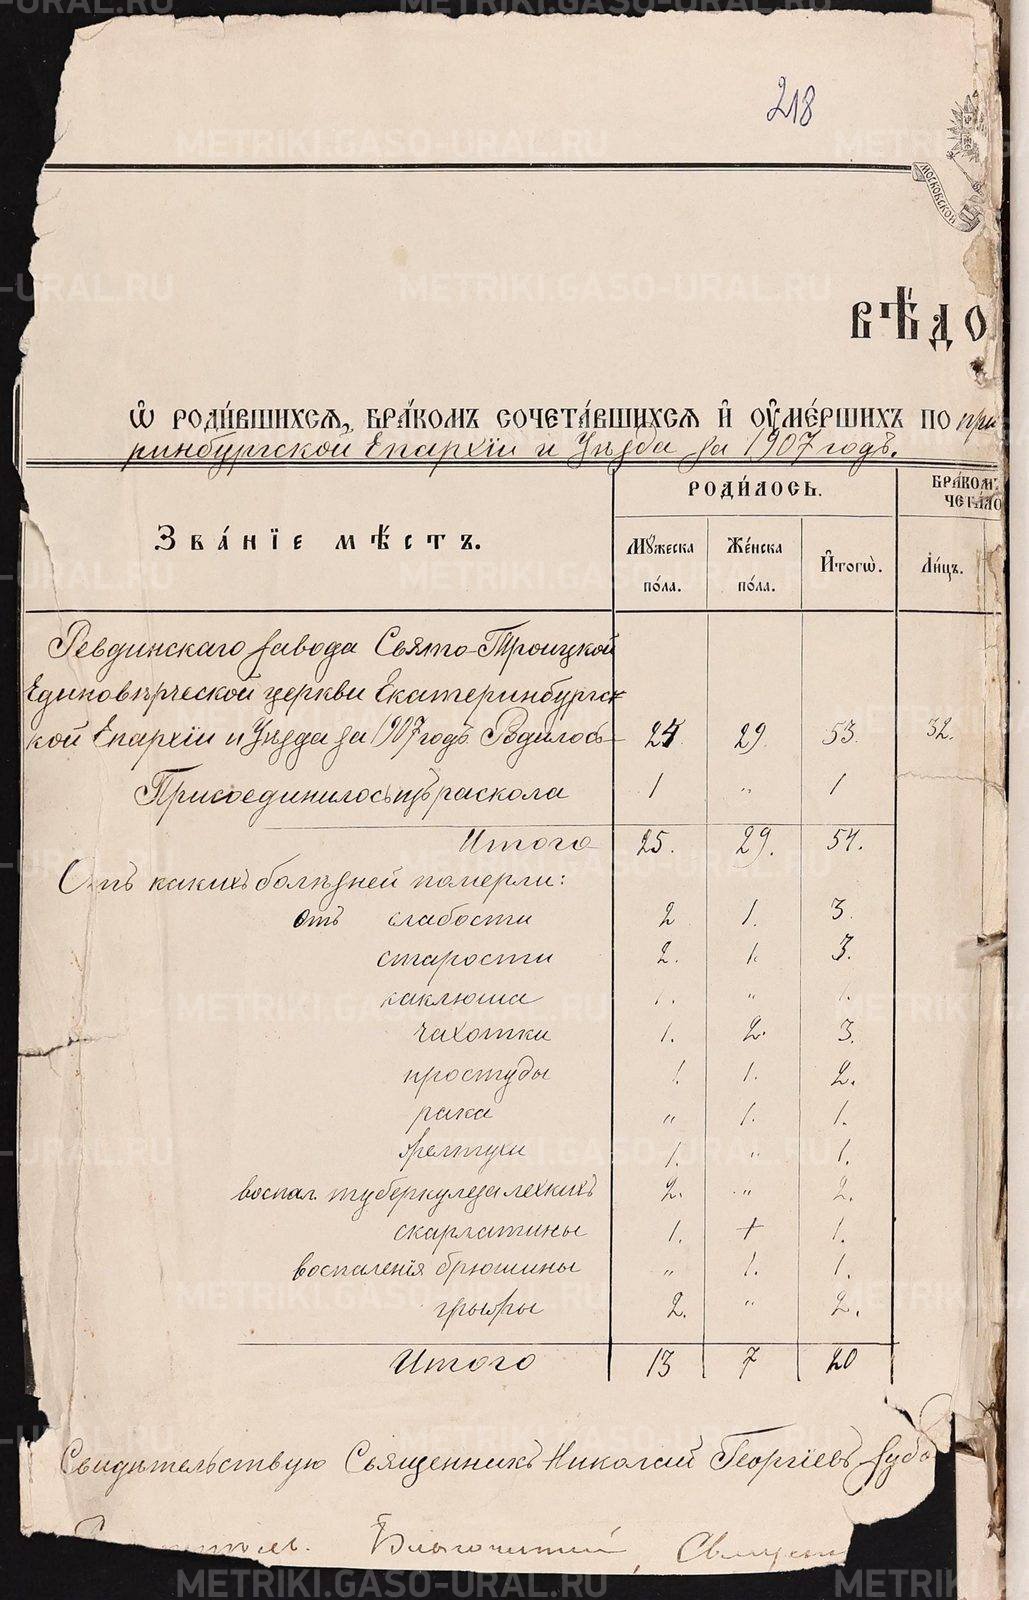 218
МОСКОВСКОЙ
ВѢДО
Ѡ РОДИ́ВШИХСЯ, БРА́КОМЪ СОЧЕТА́ВШИХСЯ И҆ ОУ҆МЕ́РШИХЪ ПО при
ринбургской Епархіи и Уѣзда за 1907 годъ.
ЗВА́НІЕ МѢ́СТЪ. РОДИ́ЛОСЬ. БРА́КОМЪ ЧЕТА́ЛО
Мꙋ́жеска по́ла. Же́нска по́ла. И҆тогѡ̀. Ли́цъ.
Ревдинскаго завода Свято-Троицкой
Единовѣрческой церкви Екатеринбургс-
кой Епархіи и Уѣзда за 1907 годъ. Родилось 24 29. 53. 32.
Присоединилось изъ раскола 1 „ 1
Итого 25. 29. 54.
Отъ какихъ болѣзней померли:
отъ слабости 2 1. 3.
старости 2. 1. 3.
каклюша 1. „ 1.
чахотки 1. 2. 3.
простуды 1. 1. 2.
рака „ 1. 1.
желтухи 1. „ 1.
воспал. туберкулеза лехкихъ 2. „ 2.
скарлатины 1. + 1.
воспаленія брюшины „ 1. 1.
грыжы 2. „ 2.
Итого 13 7 20
Свидѣтельствую Священникъ Николай Георгіевъ Зубо
Благочинный, Священ
METRIKI.GASO-URAL.RU